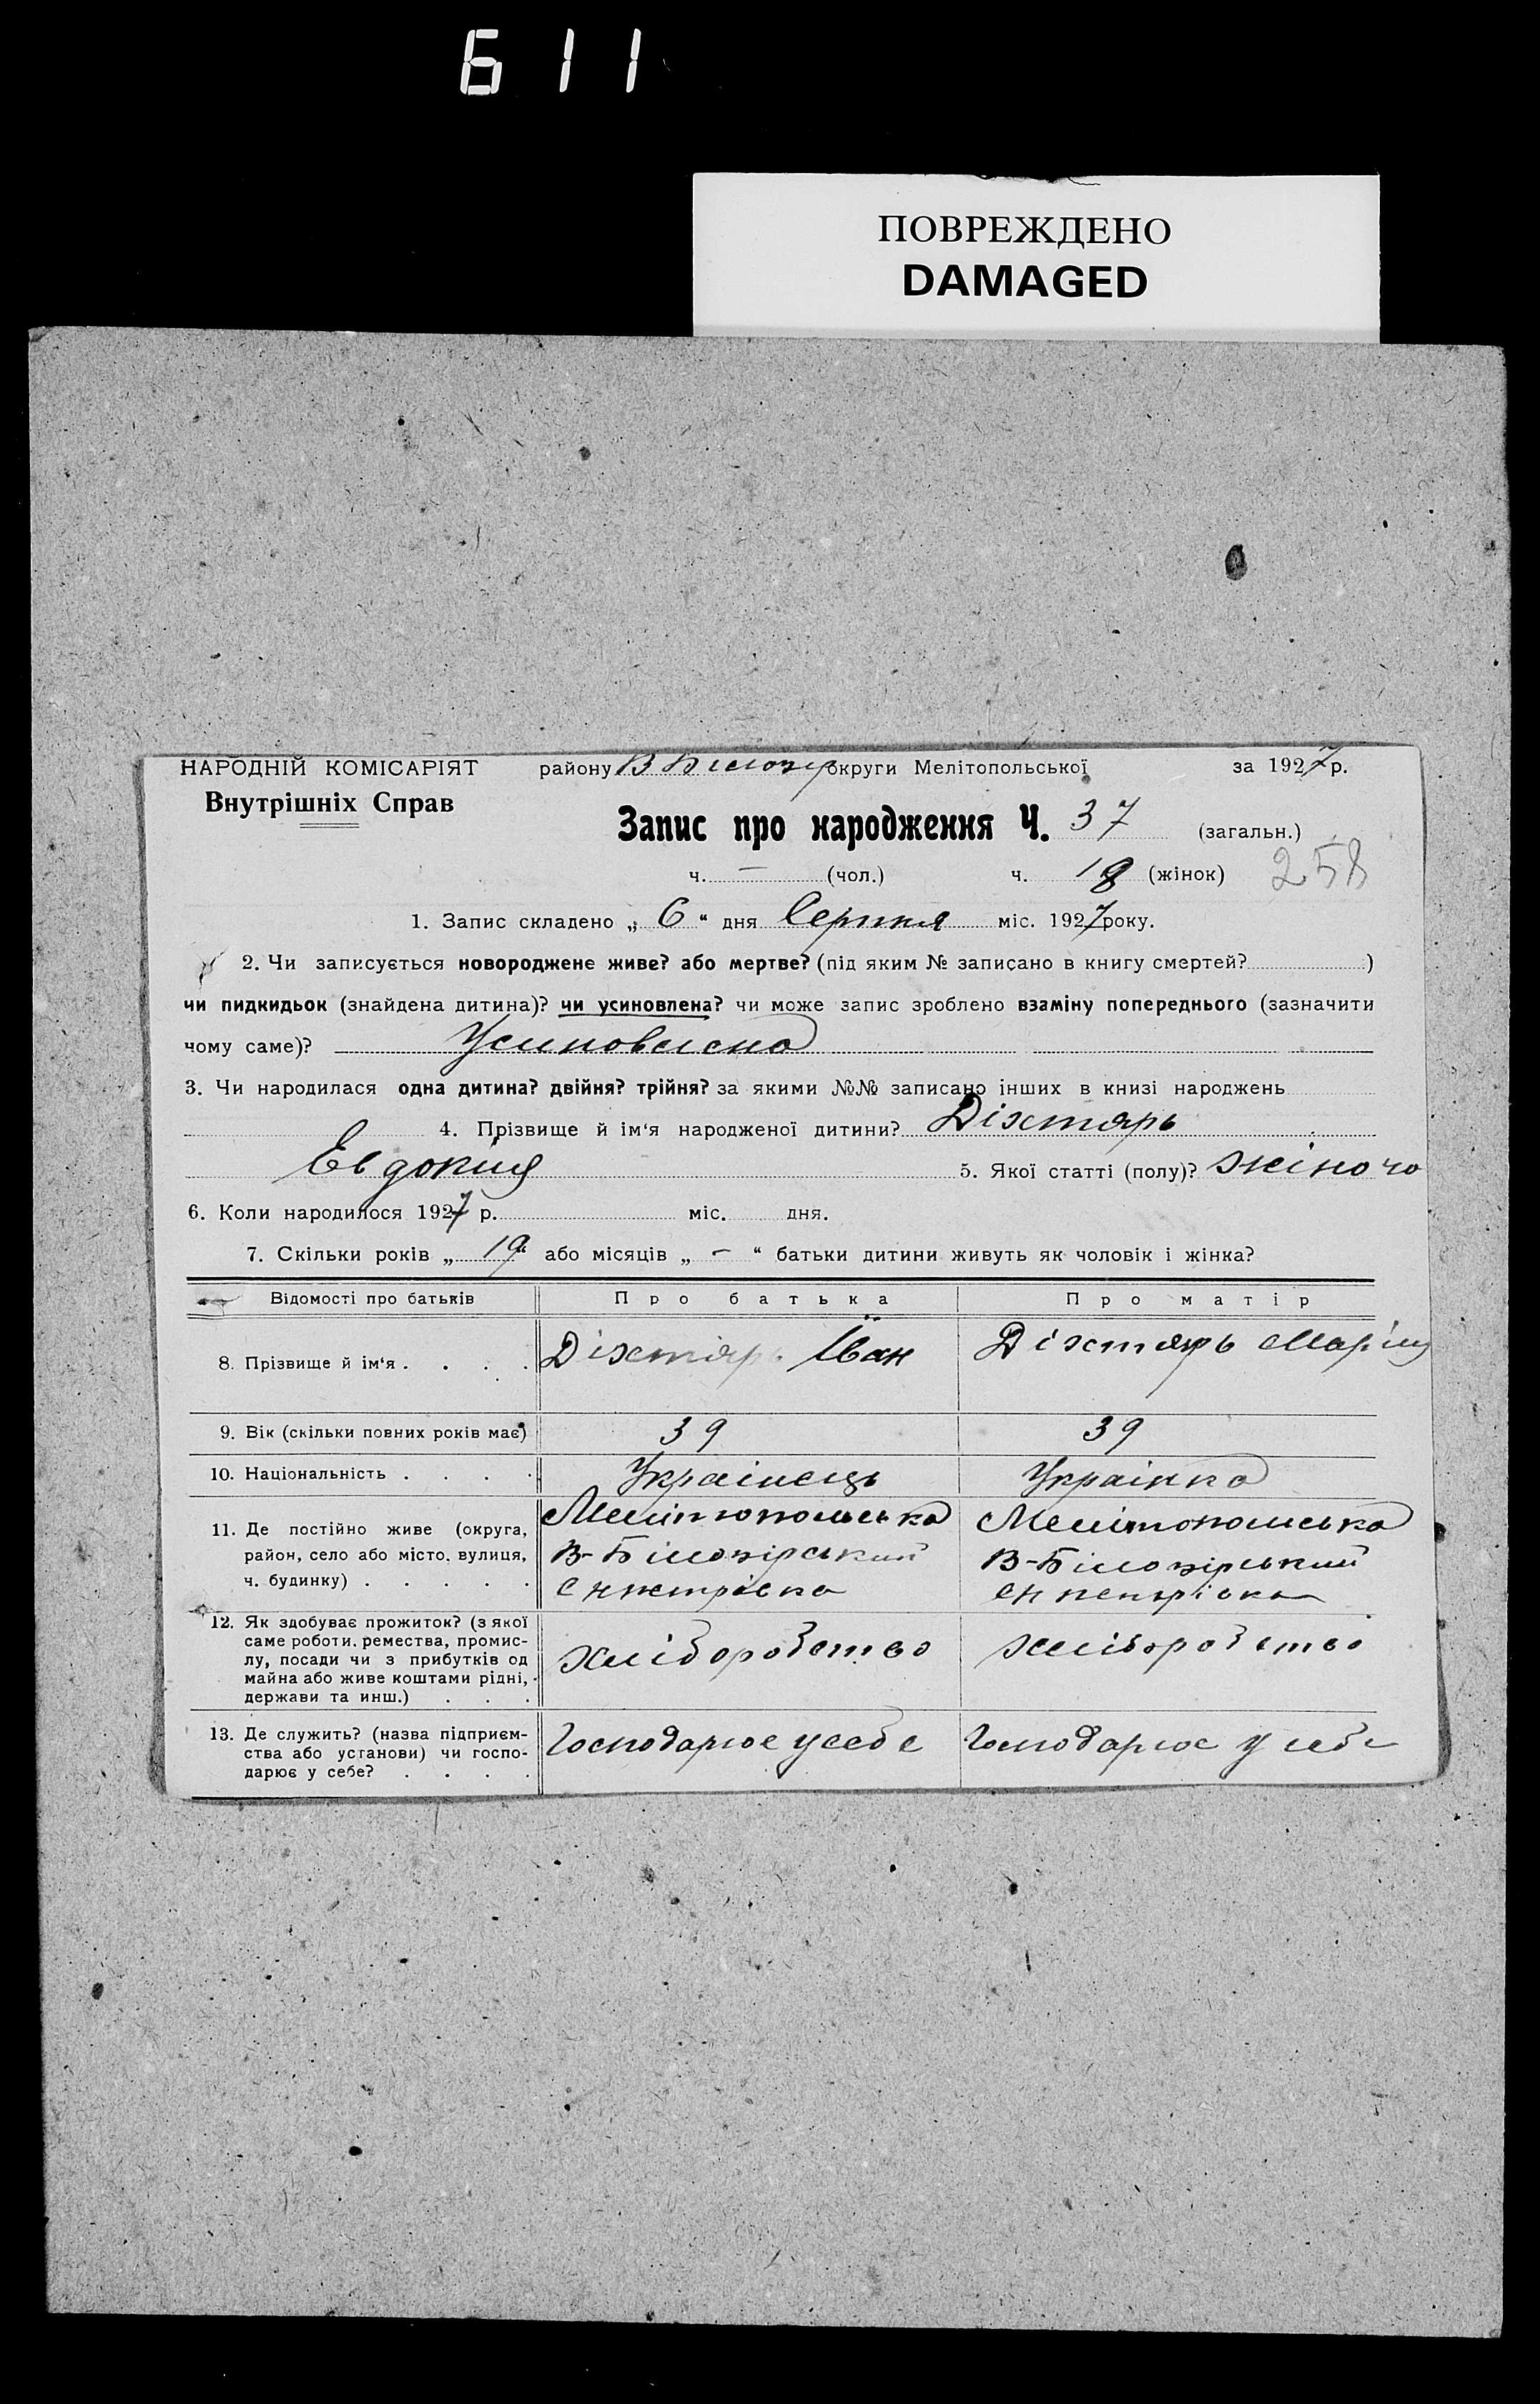 611
ПОВРЕЖДЕНО
DAMAGED
НАРОДНІЙ КОМІСАРІЯТ району В Білозір округи Мелітопольської за 1927 р.
Внутрішніх Справ
Запис про народження Ч. 37 (загальн.)
ч. — (чол.) ч. 18 (жінок) 258
1. Запис складено „ 6 “ дня Серпня міс. 1927 року.
2. Чи записується новороджене живе? або мертве? (під яким № записано в книгу смертей? )
чи пидкидьок (знайдена дитина)? чи усиновлена? чи може запис зроблено взаміну попереднього (зазначити
чому саме)? Усиновлена
3. Чи народилася одна дитина? двійня? трійня? за якими №№ записано інших в книзі народжень
4. Прізвище й ім‘я народженої дитини? Діхтярь
Евдокия 5. Якої статті (полу)? жіночо
6. Коли народилося 1927 р. міс. дня.
7. Скільки років „ 19 “ або місяців „ — “ батьки дитини живуть як чоловік і жінка?
Відомості про батьків Про батька Про матір
8. Прізвище й ім‘я . . . . Діхтярь Іван Діхтярь Марія
9. Вік (скільки повних років має) 39 39
10. Національність . . . . Украінець Украінка
11. Де постійно живе (округа, Мелітопольська Мелітопольська
район, село або місто, вулиця, В-Білозірський В-Білозірський
ч. будинку) . . . . .
12. Як здобуває прожиток? (з якої
саме роботи, ремества, промис-
лу, посади чи з прибутків од хліборобство хліборобство
майна або живе коштами рідні,
держави та инш.) . . .
13. Де служить? (назва підприєм- Господарює у себе Господарює у себе
ства або установи) чи госпо-
дарює у себе? . . . .